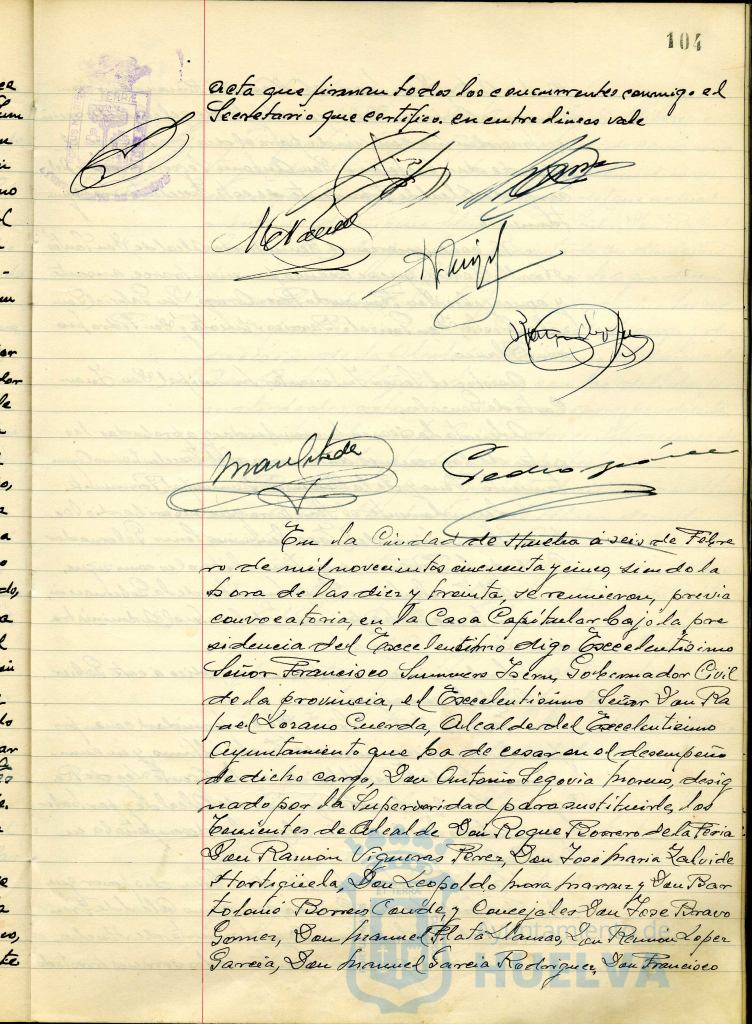 104
acta que firman todos los concurrentes conmigo el
Secretario que certifico. en entre lineas vale
En la Ciudad de Huelva á seis de Febre
ro de mil novecientos cincuenta y cinco, siendo la
hora de las diez y treinta, se reunieron, previa
convocatoria, en la Casa Capitular bajo la pre
sidencia del Excelentitmo digo Excelentisimo
Señor Francisco Summers Isern, Gobernador Civil
de la provincia, el Excelentisimo Señor Don Ra
fael Lozano Cuerda, Alcalde del Excelentisimo
Ayuntamiento que ha de cesar en el desempeño
de dicho cargo, Don Antonio Segovia Moreno, desig
nado por la Superioridad para sustituirle, los
Tenientes de Alcalde Don Roque Borrero de la Feria
Don Ramón Vigueras Perez, Don Jose Maria Zalvide
Hortigüela, Don Leopoldo Mora y Don Bar
tolomé Borrero Conde, y Concejales Don Jose Bravo
Gomez, Don Manuel Plata Llamas, Don Ramon Lopez
Garcia, Don Manuel Garcia Rodriguez, Don Francisco
Ayuntamiento de
HUELVA